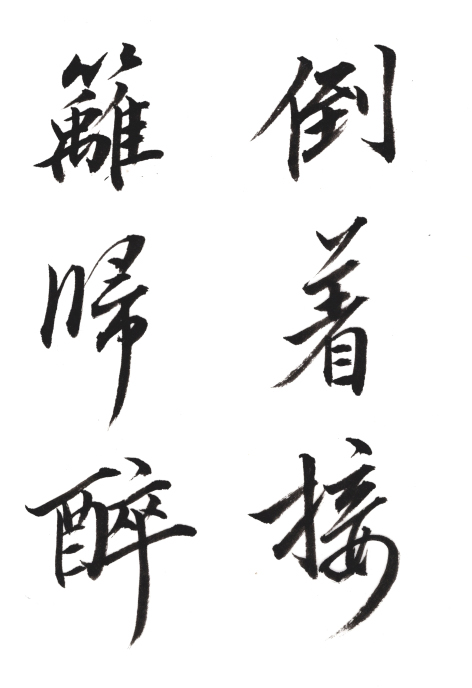 倒着接
籬歸醉